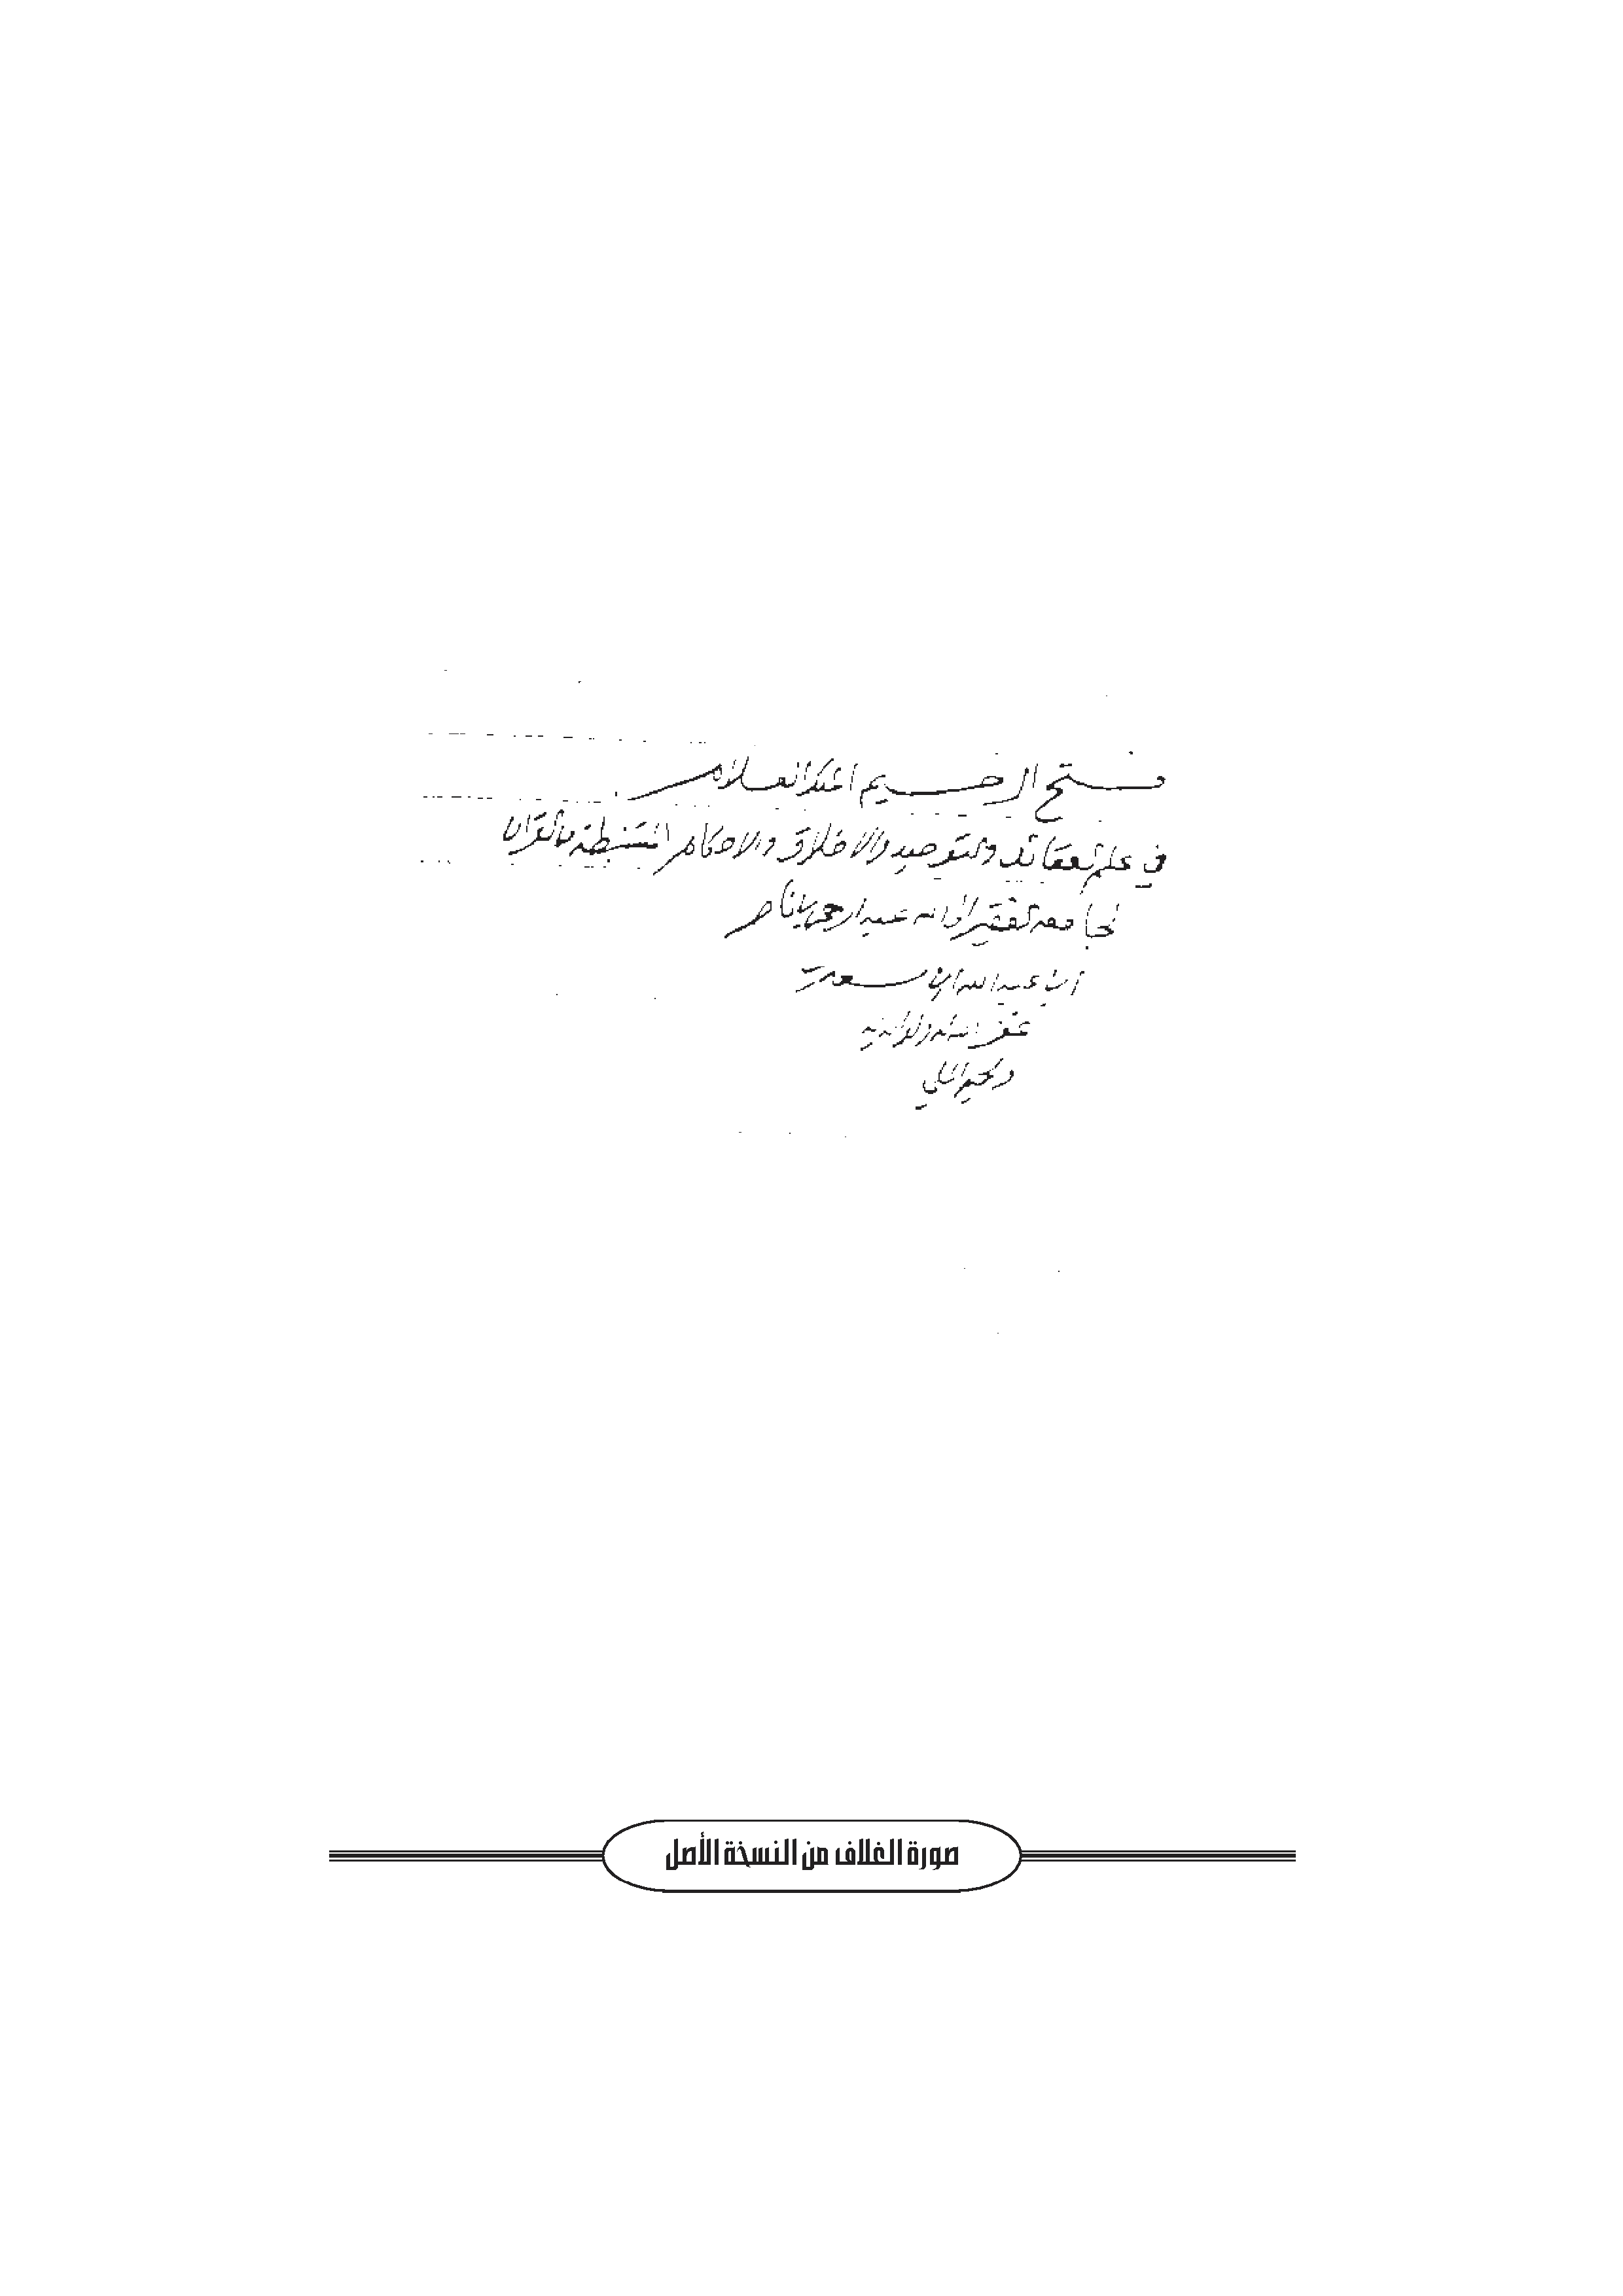 فتح الرحيم الملك العلام
في علم العقائد والتوحيد والاخلاق والاحكام المستنبطة من القرآن
لجامعه الفقير الى الله عبد الرحمن بن ناصر
ابن عبد الله ابن سعدي
غفر الله له ولوالديه
وجميع المسلمين
صورة الغلاف من النسخة الأصل